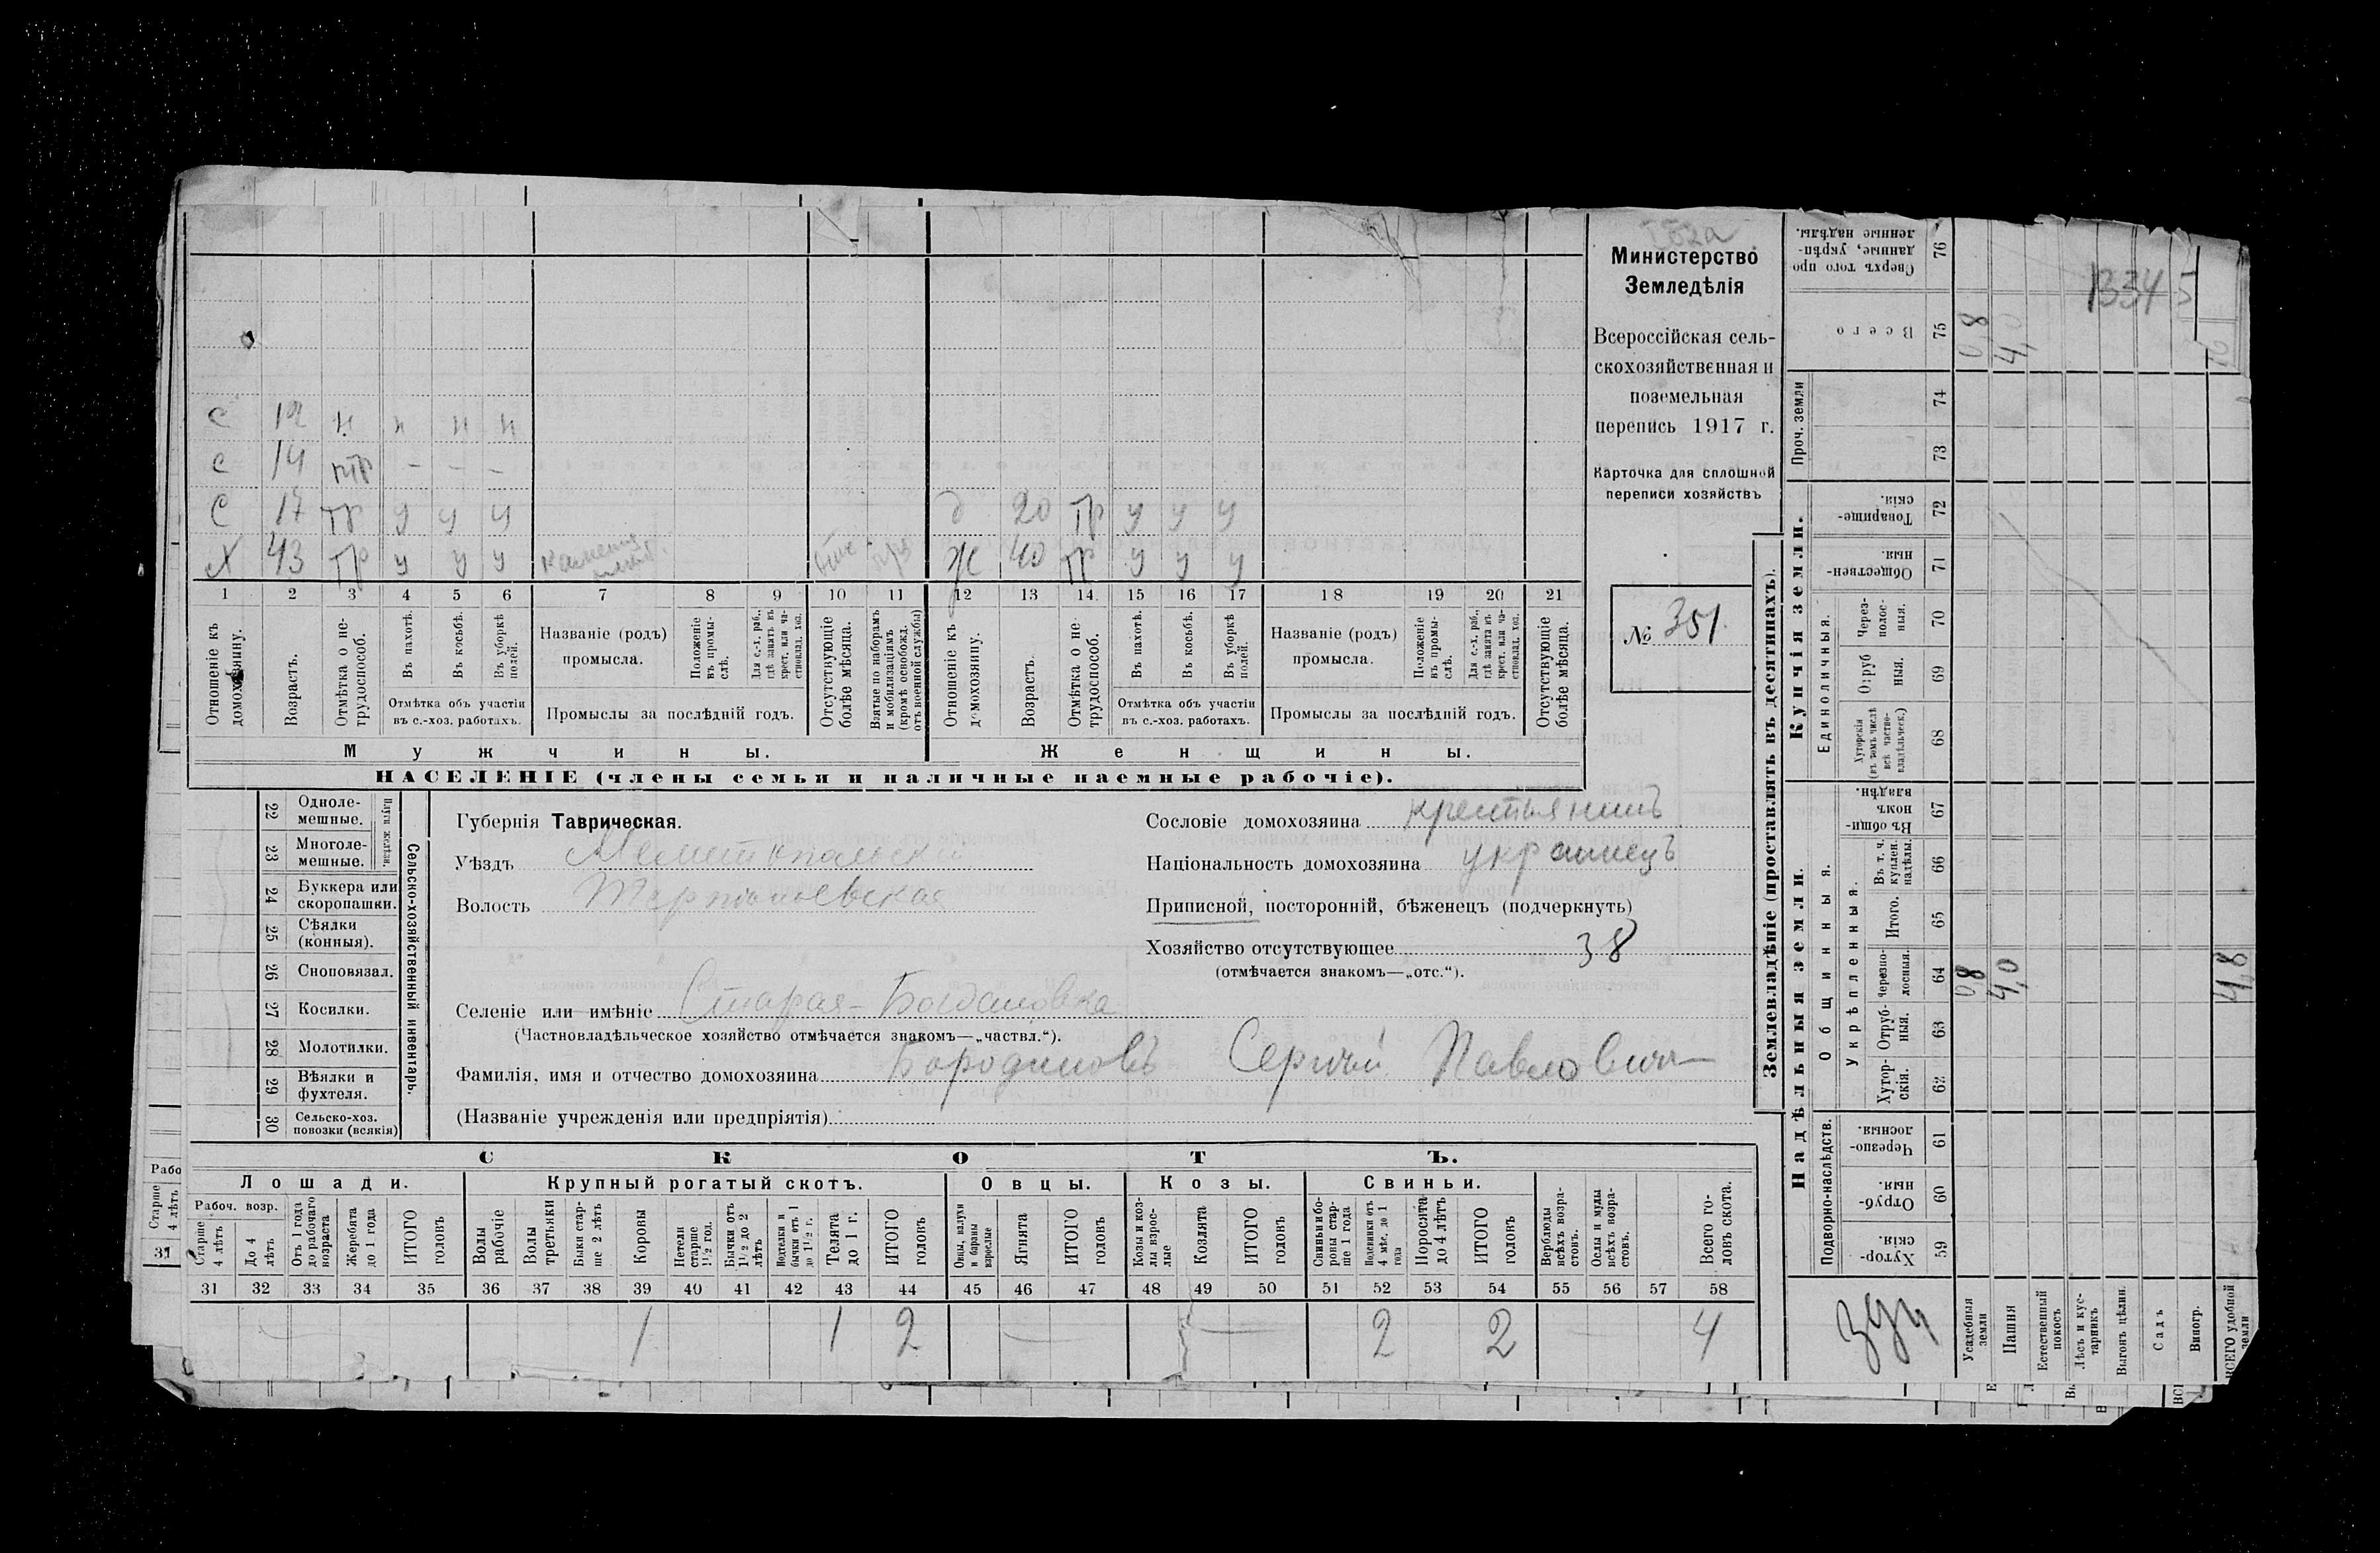 Министерство
Земледѣлія
Всероссійская сель-
скохозяйственная и
поземельная
перепись 1917 г.
Карточка для сплошной
переписи хозяйствъ
№ 351.
с 12 н н н н
с 14 птр - - -
с 17 тр у у у
д 20 тр у у у
х 43 тр у у у
ж 40 тр у у у
1 2 3 4 5 6 7 8 9 10 11 12 13 14 15 16 17 18 19 20 21
Отношеніе къ домохозяину.
Возрастъ.
Отмѣтка о не-трудоспособ.
Въ пахотѣ.
Въ косьбѣ.
Въ уборкѣ полей.
Отмѣтка объ участіи
въ с.-хоз. работахъ.
Названіе (родъ)
промысла.
Положеніе въ промы-слѣ.
Для с.-х. раб., гдѣ занятъ въ крест. или ча-стновлад. хоз.
Промыслы за послѣдній годъ.
Отсутствующіе болѣе мѣсяца.
Взятые по наборамъ и мобилизаціямъ (кромѣ освобожд. отъ военной службы)
Отношеніе къ домохозяину.
Возрастъ.
Отмѣтка о не-трудоспособ.
Въ пахотѣ.
Въ косьбѣ.
Въ уборкѣ полей.
Отмѣтка объ участіи
въ с.-хоз. работахъ.
Названіе (родъ)
промысла.
Положеніе въ промы-слѣ.
Для с.-х. раб., гдѣ занята въ крест. или ча-стновлад. хоз.
Промыслы за послѣдній годъ.
Отсутствующіе болѣе мѣсяца.
Мужчины.
Женщины.
НАСЕЛЕНІЕ (члены семьи и наличные наемные рабочіе).
22 Одноле-мешные.
23 Многоле-мешные.
Плуги желѣзн.
24 Буккера или скоропашки.
25 Сѣялки (конныя).
26 Сноповязал.
27 Косилки.
28 Молотилки.
29 Вѣялки и фухтеля.
30 Сельско-хоз. повозки (всякія)
Сельско-хозяйственный инвентарь.
Губернія Таврическая.
Уѣздъ Мелитопольскій
Волость Терпѣньевская
Сословіе домохозяина крестьянинъ
Національность домохозяина украинецъ
Приписной, посторонній, бѣженецъ (подчеркнуть)
Хозяйство отсутствующее 38
(отмѣчается знакомъ—„отс.“).
Селеніе или имѣніе Старая-Богдановка
(Частновладѣльческое хозяйство отмѣчается знакомъ—„частвл.“).
Фамилія, имя и отчество домохозяина Бородиновъ Сергѣй Павловичъ
(Названіе учрежденія или предпріятія)
СКОТЪ.
Лошади.
Крупный рогатый скотъ.
Овцы.
Козы.
Свиньи.
Рабоч. возр.
Старше 4 лѣтъ
До 4 лѣтъ
Отъ 1 года до рабочаго возраста
Жеребята до 1 года
ИТОГО головъ
Волы рабочіе
Волы третьяки
Быки стар-ше 2 лѣтъ
Коровы
Нетели старше 1½ год.
Бычки отъ 1½ до 2 лѣтъ
Подтелки и бычки отъ 1 до 1½ г.
Телята до 1 г.
ИТОГО головъ
Овцы, валухи и бараны взрослые
Ягнята
ИТОГО головъ
Козы и коз-лы взрос-лые
Козлята
ИТОГО головъ
Свиньи и бо-ровы стар-ше 1 года
Подсвинки отъ 4 мѣс. до 1 года
Поросята до 4 лѣтъ
ИТОГО головъ
Верблюды всѣхъ возра-стовъ.
Ослы и мулы всѣхъ возра-стовъ.
Всего го-ловъ скота.
31 32 33 34 35 36 37 38 39 40 41 42 43 44 45 46 47 48 49 50 51 52 53 54 55 56 57 58
1 1 2 — — 2 2 — 4
Землевладѣніе (проставлять въ десятинахъ).
Надѣльныя земли.
Купчія земли.
Проч. земли
Подворно-наслѣдств.
Общинныя.
Укрѣпленныя.
Единоличныя.
Хутор-скія. 59
Отруб-ныя. 60
Черезпо-лосныя. 61
Хутор-скія. 62
Отруб-ныя. 63
Черезпо-лосныя. 64
Итого. 65
Въ т. ч. куплен. надѣлы. 66
Въ общин-номъ владѣн. 67
Хуторскія (въ томъ числѣ всѣ частно-владѣльческ.) 68
Отруб-ныя. 69
Через-полос-ныя. 70
Обществен-ныя. 71
Товарище-скія. 72
73
74
Всего 75
Сверхъ того про-данные, укрѣп-ленные надѣлы. 76
Усадебныя земли 0,8 0,8
Пашня 4,0 4,0
Естественный покосъ
Лѣсъ и кус-тарникъ
Выгонъ цѣлин.
Садъ
Виногр.
ВСЕГО удобной земли 4,8
1334
394
Рабо
Старше 4 лѣтъ
31